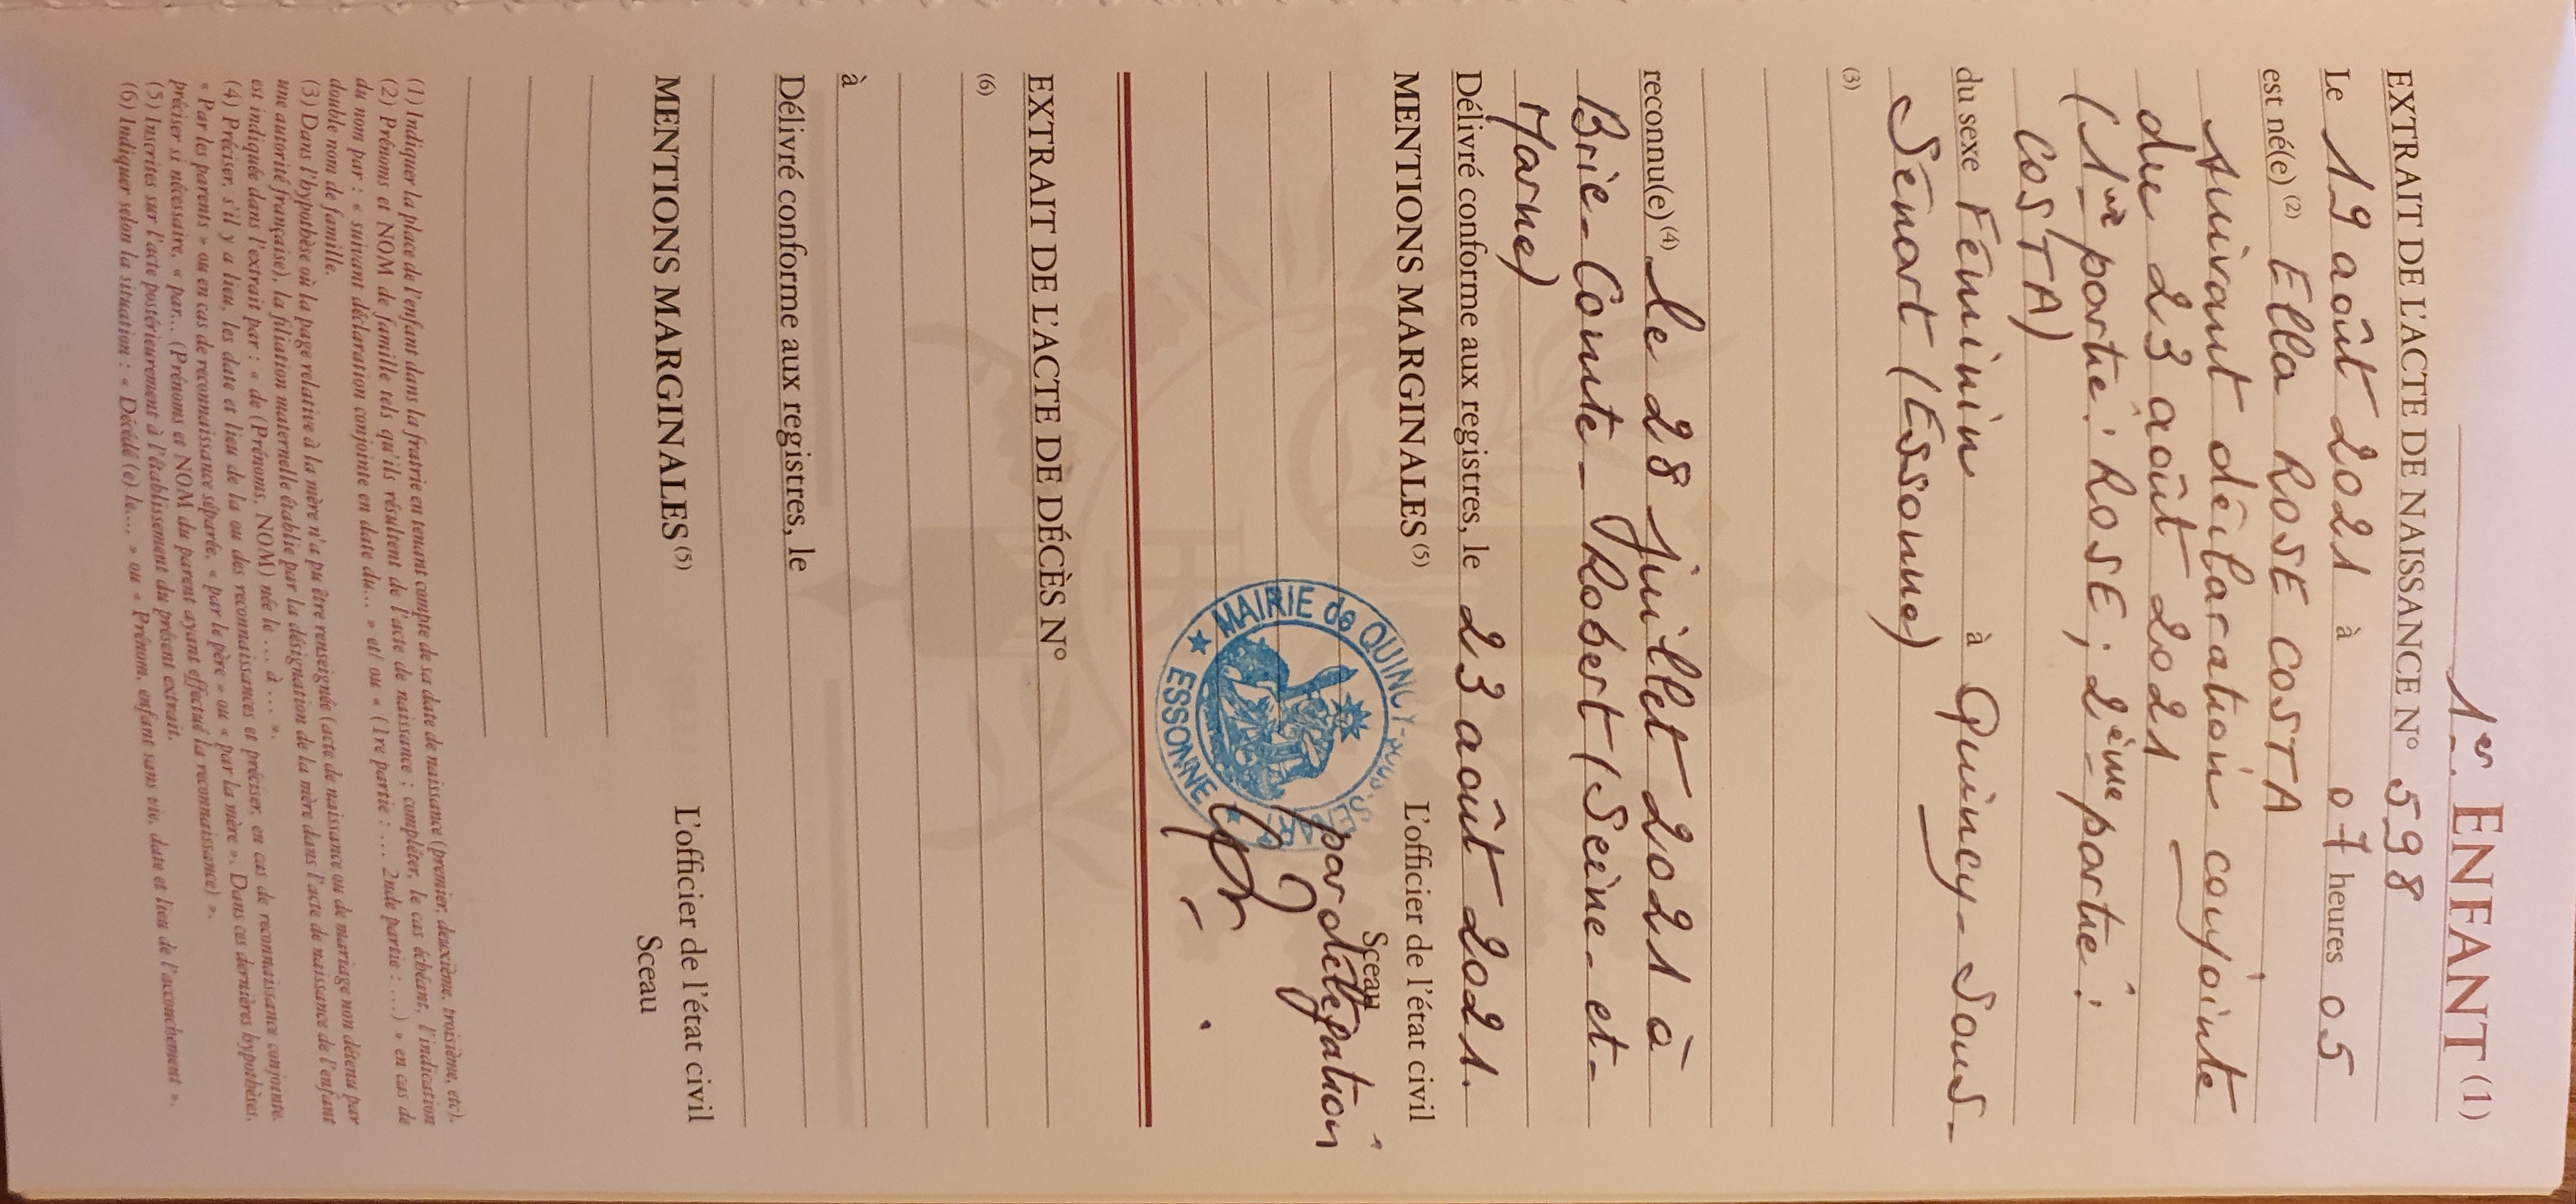 1er. ENFANT (1)
EXTRAIT DE L'ACTE DE NAISSANCE N° 598
Le 19 août 2021 à 07 heures 05
est né(e) (2) Ella ROSE COSTA
suivant déclaration conjointe
du 23 août 2021
(1re partie : ROSE ; 2ème partie :
COSTA)
du sexe Féminin à Quincy-Sous-
Sénart (Essonne)
(3)
reconnu(e) (4) le 28 juillet 2021 à
Brie-Comte-Robert (Seine-et-
Marne)
Délivré conforme aux registres, le 23 août 2021.
MENTIONS MARGINALES (5) L'officier de l'état civil
Sceau
par délégation
MAIRIE de QUINCY-sous-
ESSONNE
EXTRAIT DE L'ACTE DE DÉCÈS N°
(6)
à
Délivré conforme aux registres, le
MENTIONS MARGINALES (5) L'officier de l'état civil
Sceau
(1) Indiquer la place de l'enfant dans la fratrie en tenant compte de sa date de naissance (premier, deuxième, troisième, etc).
(2) Prénoms et NOM de famille tels qu'ils résultent de l'acte de naissance ; compléter, le cas échéant, l'indication
du nom par : « suivant déclaration conjointe en date du... » et/ ou « (1re partie : ... 2nde partie : ...) » en cas de
double nom de famille.
(3) Dans l'hypothèse où la page relative à la mère n'a pu être renseignée (acte de naissance ou de mariage non détenu par
une autorité française), la filiation maternelle établie par la désignation de la mère dans l'acte de naissance de l'enfant
est indiquée dans l'extrait par : « de (Prénoms, NOM) née le ... à ... ».
(4) Préciser, s'il y a lieu, les date et lieu de la ou des reconnaissances et préciser, en cas de reconnaissance conjointe,
« Par les parents » ou en cas de reconnaissance séparée, « par le père » ou « par la mère ». Dans ces dernières hypothèses,
préciser si nécessaire, « par... (Prénoms et NOM du parent ayant effectué la reconnaissance) ».
(5) Inscrites sur l'acte postérieurement à l'établissement du présent extrait.
(6) Indiquer selon la situation : « Décédé (e) le.... » ou « Prénom, enfant sans vie, date et lieu de l'accouchement ».